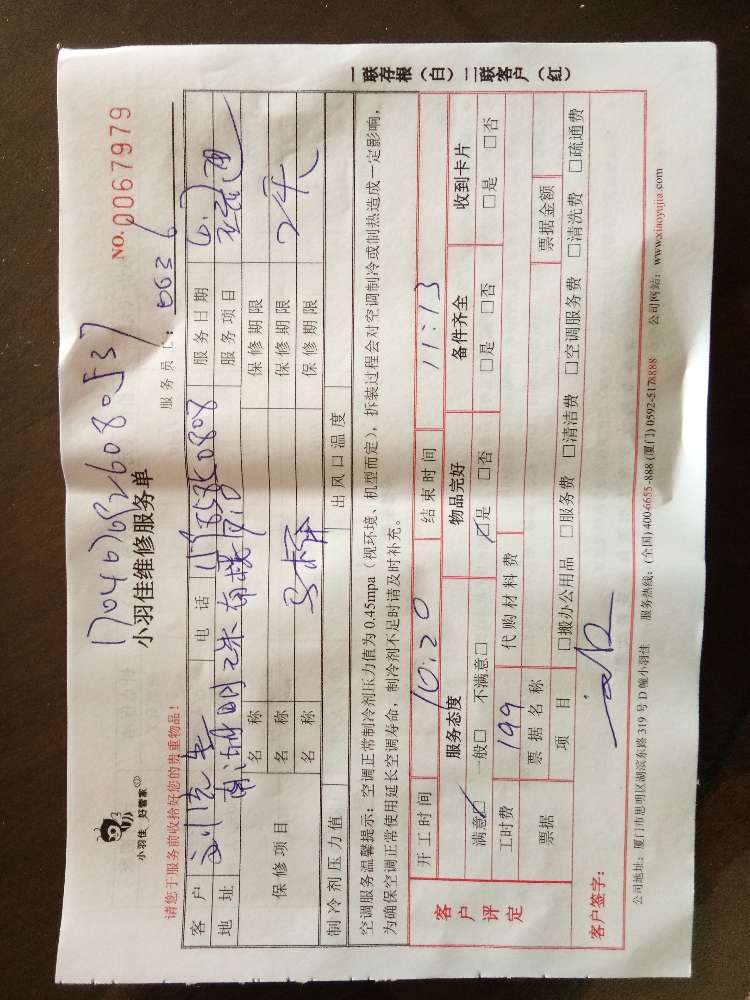 小羽佳 好管家
NO.0067979
小羽佳维修服务单
请您于服务前收拾好您的贵重物品！
服务员工：0636
客户 电话 服务日期
地址 服务项目
保修项目
名称 保修期限
名称 保修期限
名称 保修期限
制冷剂压力值 出风口温度
空调服务温馨提示：空调正常制冷剂压力值为0.45mpa（视环境、机型而定），拆装过程会对空调制冷或制热造成一定影响，
为确保空调正常使用延长空调寿命，制冷剂不足时请及时补充。
客户评定
开工时间 10:20 结束时间 11:13
服务态度 物品完好 备件齐全 收到卡片
满意□ 一般□ 不满意□ □是 □否 □是 □否 □是 □否
工时费 199 代购材料费
票据 票据名称 票据金额
项目 □搬办公用品 □服务费 □清洁费 □空调服务费 □清洗费 □疏通费
客户签字：
公司地址：厦门市思明区湖滨东路319号D幢小羽佳 服务热线：(全国) 400-6655-888 (厦门) 0592-5178888 公司网站：www.xiaoyujia.com
一联存根（白）二联客户（红）